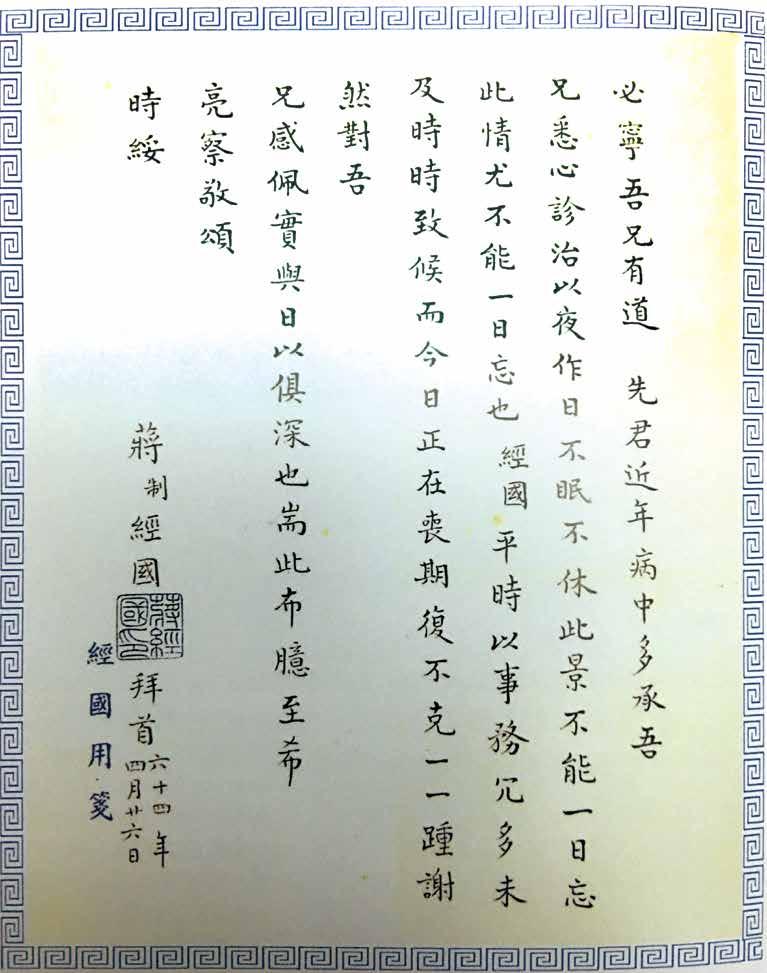 必寧吾兄有道　先君近年病中多承吾
兄悉心診治以夜作日不眠不休此景不能一日忘
此情尤不能一日忘也 經國 平時以事務冗多未
及時時致候而今日正在喪期復不克一一踵謝
然對吾
兄感佩實與日以俱深也耑此布臆至希
亮察敬頌
時綏
蔣制經國
蔣經國印
拜首
六十四年
四月廿六日
經國用箋